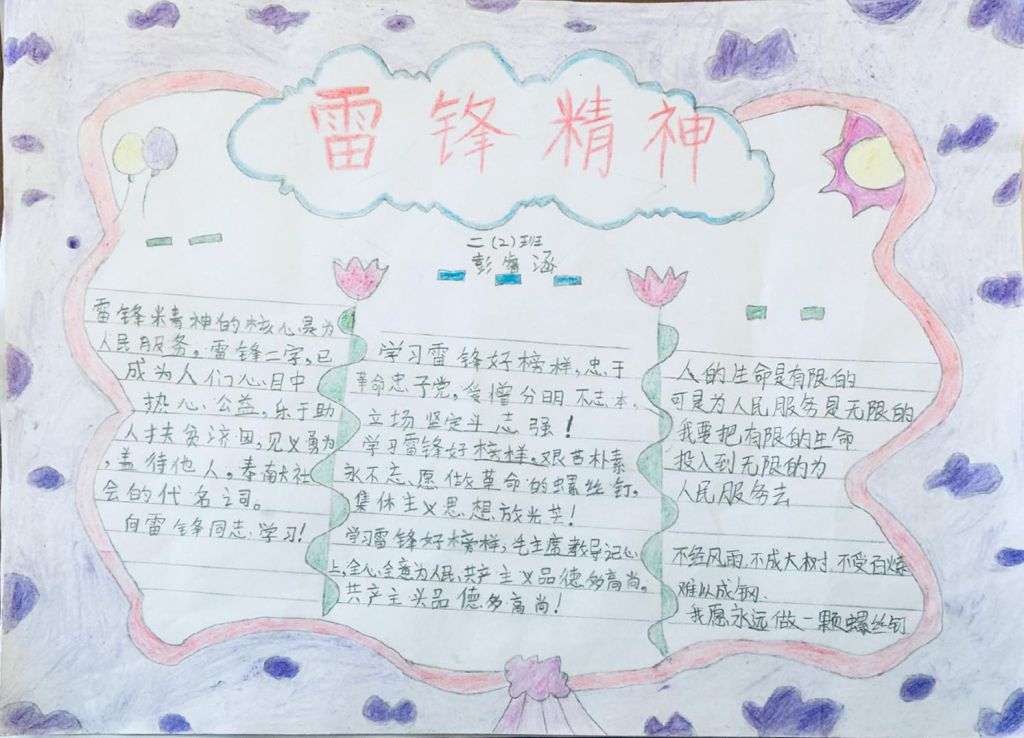 雷锋精神
二(2)班
彭睿涵
雷锋精神的核心是为
人民服务。雷锋二字,已
成为人们心目中
热心公益,乐于助
人扶贫济困,见义勇为
,善待他人。奉献社
会的代名词。
向雷锋同志学习!
学习雷锋好榜样,忠于
革命忠于党,爱憎分明不忘本,
立场坚定斗志强!
学习雷锋好榜样。艰苦朴素
永不忘、愿做革命的螺丝钉。
集体主义思想放光芒!
学习雷锋好榜样,毛主席教导记心
上,全心全意为人民、共产主义品德多高尚。
共产主义品德多高尚!
人的生命是有限的
可是为人民服务是无限的
我要把有限的生命
投入到无限的为
人民服务去
不经风雨,不成大树,不受百炼
难以成钢.
我愿永远做一颗螺丝钉